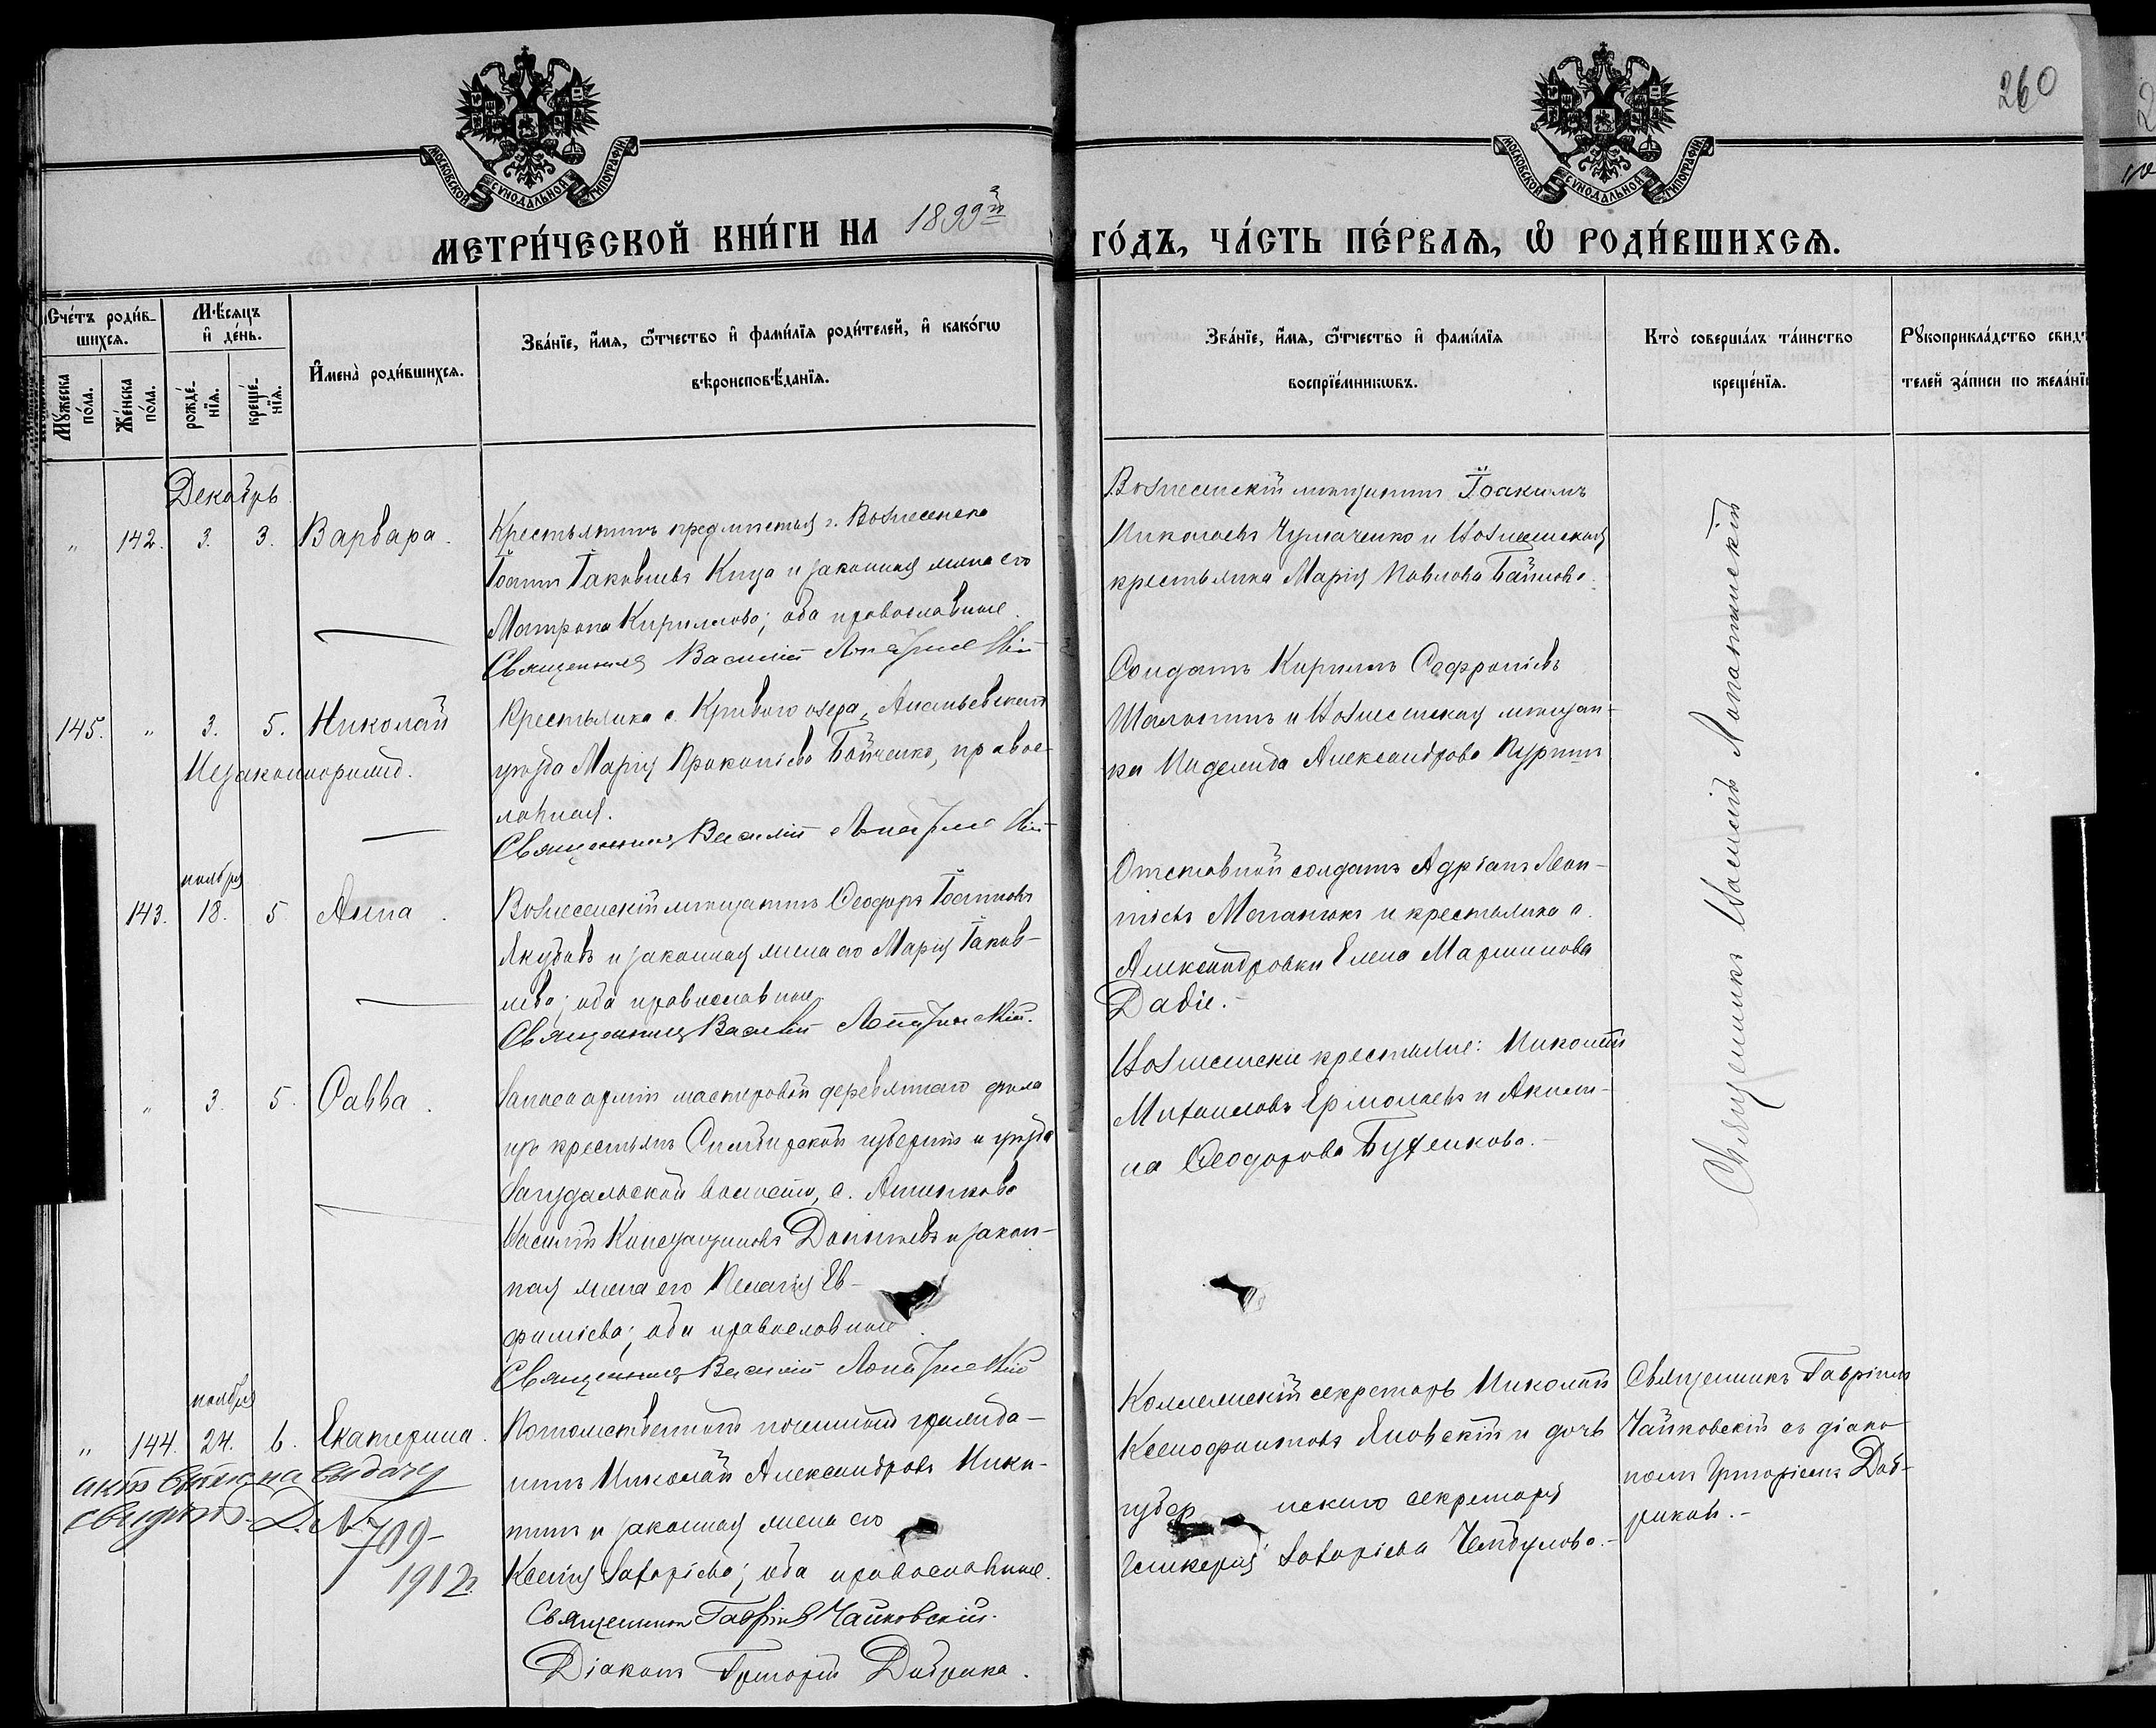 260
МОСКОВСКОЙ СѴНОДАЛЬНОЙ ТИПОГРАФІИ
МОСКОВСКОЙ СѴНОДАЛЬНОЙ ТИПОГРАФІИ
МЕТРИ́ЧЕСКОЙ КНИ́ГИ НА 1899й ГО́ДЪ, ЧА́СТЬ ПЕ́РВАѦ, Ѡ҆ РОДИ́ВШИХСѦ.
Сче́тъ роди́в-
шихсѧ.
Мꙋ́жеска по́ла.
Же́нска по́ла.
Мѣ́сѧцъ
и҆ де́нь.
рожде́-
нїѧ.
креще́-
нїѧ.
И҆мена̀ роди́вшихсѧ.
Зва́нїе, и҆́мѧ, ѻ҆́тчество и҆ фами́лїѧ роди́телей, и҆ како́гѡ
вѣроисповѣ́данїѧ.
Зва́нїе, и҆́мѧ, ѻ҆́тчество и҆ фами́лїѧ
воспрїе́мникѡвъ.
Кто̀ соверша́лъ та́инство
креще́нїѧ.
Рꙋкоприкла́дство свидѣ́
телей за́писи по жела́нїю
Декабрь
" 142. 3. 3. Варвара.
Крестьянинъ предмѣстья г. Вознесенска
Іоаннъ Іаковлевъ Куца и законная жена его
Матрона Кириллова; оба православные.
Священникъ Василій Лопатинскій
Вознесенскій мѣщанинъ Іоакимъ
Николаевъ Чумаченко и Вознесенская
крестьянка Марія Павлова
Священникъ Василій Лопатинскій
145. " 3. 5. Николай
Незаконнорожд.
Крестьянка с. Кривого озера, Ананьевскаго
уѣзда Марія Прокопіева Бойченко, правос-
лавная.
Священникъ Василій Лопатинскій
Солдатъ Кириллъ Софроніевъ
и Вознесенская мѣщан-
ка Александрова
ноября
143. 18. 5. Анна.
Вознесенскій мѣщанинъ Ѳеодоръ Іоанновъ
Якубовъ и законная жена его Марія Іаков-
лева; оба православные.
Священникъ Василій Лопатинскій.
Отставной солдатъ Адріанъ Леон-
тіевъ и крестьянка с.
Александровки Елена Мартинова
Dadie.-
" 3. 5. Савва.
Запасн арміи мастеровой деревяннаго дѣла
изъ крестьянъ Симбирской губерніи и уѣзда
волости, с.
Василій и закон-
ная жена его Пелагія Ев-
фиміева; оба православные.
Священникъ Василій Лопатинскій
Вознесенскіе крестьяне: Николай
Михаиловъ Ермолаевъ и Акили-
на Ѳеодорова
ноября
" 144. 24. 6. Екатерина.
на выдачу
свидѣт. Д. №
709-
1912 г.
Потомственный почетный гражда-
нинъ Николай Александровъ Ники-
тинъ и законная жена его
Ксенія Захаріева; оба православные.
Священникъ Гавріилъ Чайковскій.
Діаконъ Григорій Добрика.
Коллежскій секретарь Николай
Ксенофонтовъ Яновскій и дочь
губер нскаго секретаря
Гликерія Захаріева
Священникъ Гавріилъ
Чайковскій съ діако-
номъ Григоріемъ Доб-
рикой.-